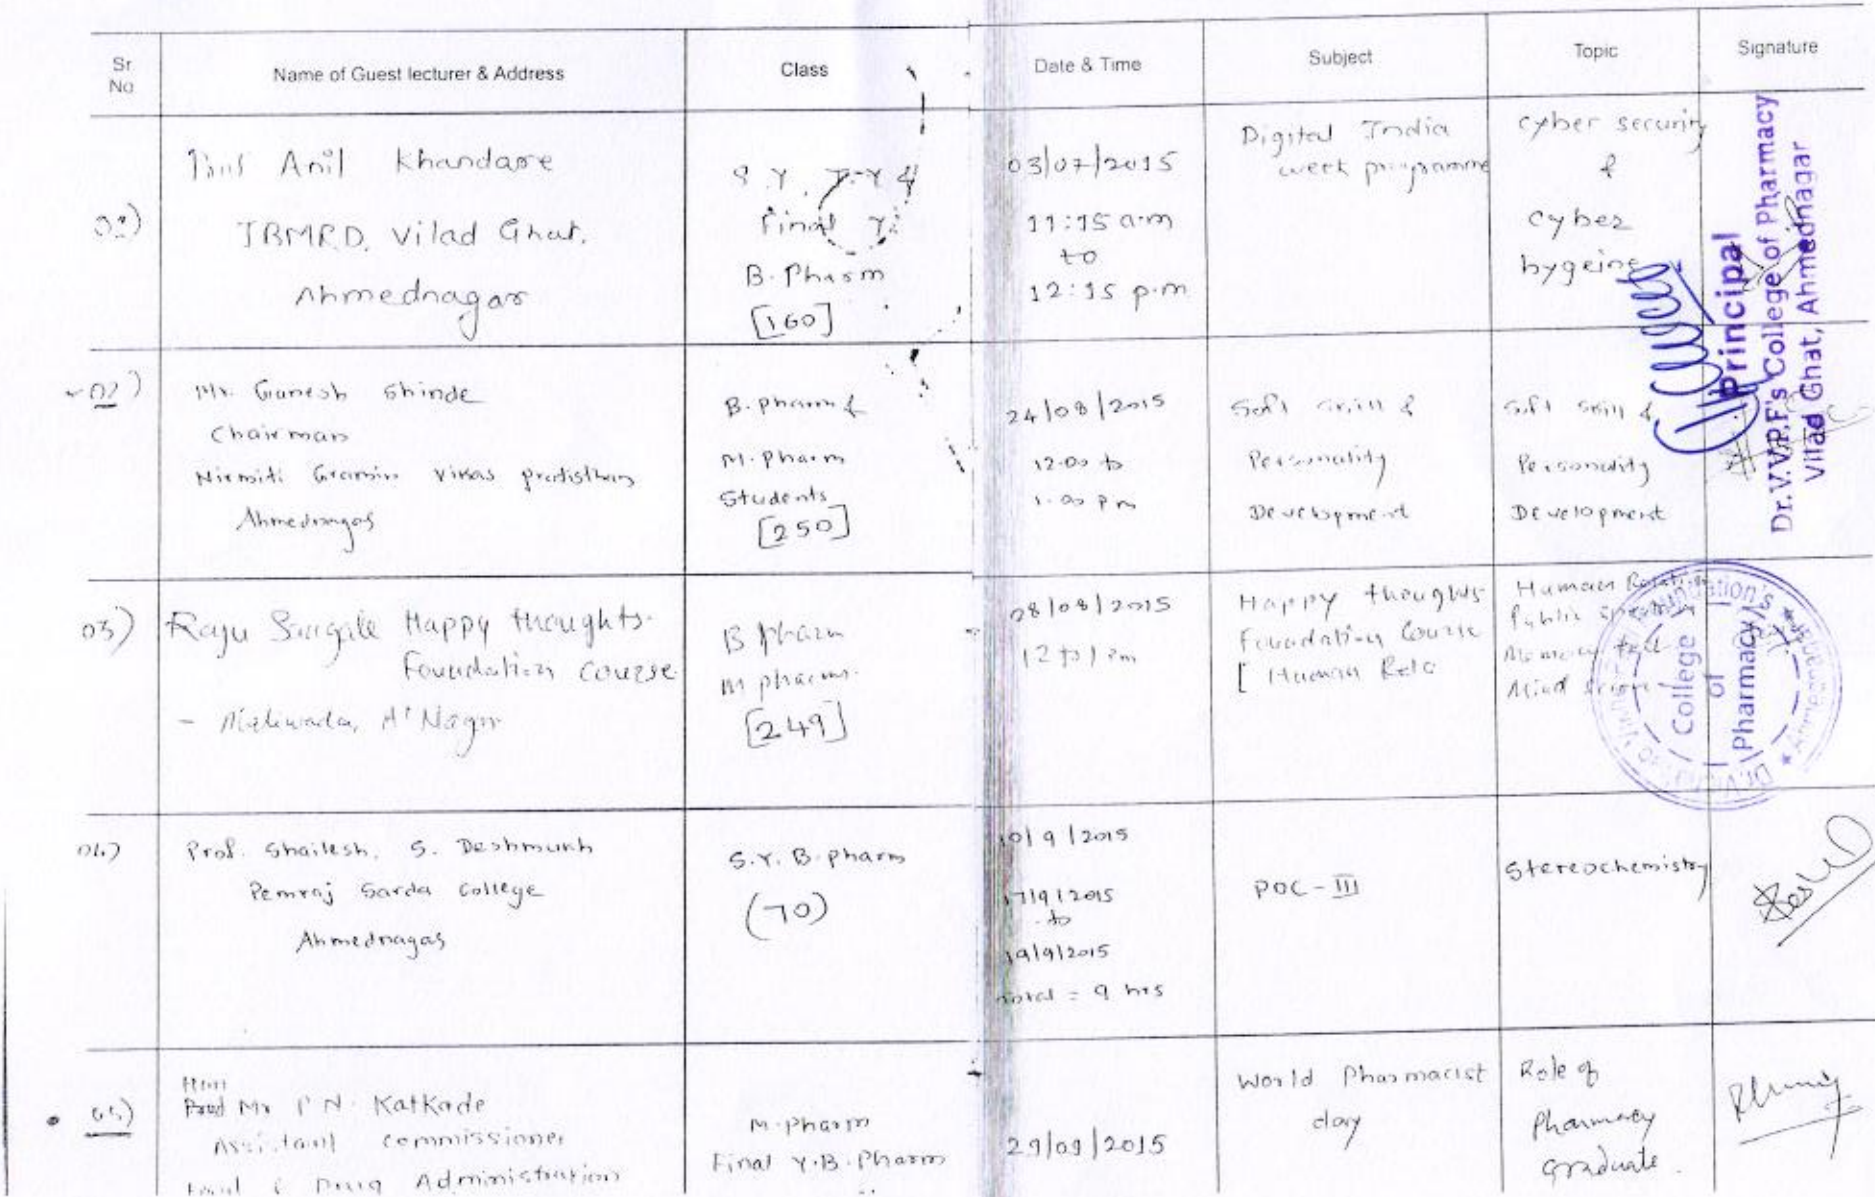 Sr No
Name of Guest lecturer & Address
Class
Date & Time
Subject
Topic
Signature
Anil Khandare
IBMRD, Vilad Ghat,
Ahmednagar
S.Y, T.Y &
Final Y.
B. Pharm
[160]
03/07/2015
11:15 a.m
to
12:15 p.m
Digital India
week programme
Cyber security
&
Cyber
hygeine
02)
Mr. Ganesh Shinde
Chairman
Nirmiti Gramin Vikas
Ahmednagar
B.pharm &
M.pharm
Students
[250]
24/08/2015
12.00 to
1.00 pm
Soft skill &
Personality
Development
Soft skill &
Personality
Development
Principal
Dr.V.V.P.F's College of Pharmacy
Vilad Ghat, Ahmednagar
03)
Raju Happy thoughts.
Foundation Course
- Maliwada, A'Nagar
B pharm
M pharm.
[249]
08/08/2015
12 to 1 pm
Happy thoughts
Foundation Course
[ Human Rela
Human
Public
Mind
College
of
Pharmacy
04)
Prof. Shailesh. S. Deshmukh
Pemraj Sarda College
Ahmednagar
S.Y. B.pharm
(70)
10/9/2015
17/9/2015
to
19/9/2015
Total = 9 hrs
POC-III
Stereochemistry
05)
Mr P N. Katkade
Assistant Commissioner
Food & Drug Administration
M.pharm
Final Y.B.Pharm
29/09/2015
World Pharmacist
day
Role of
Pharmacy
Graduate.